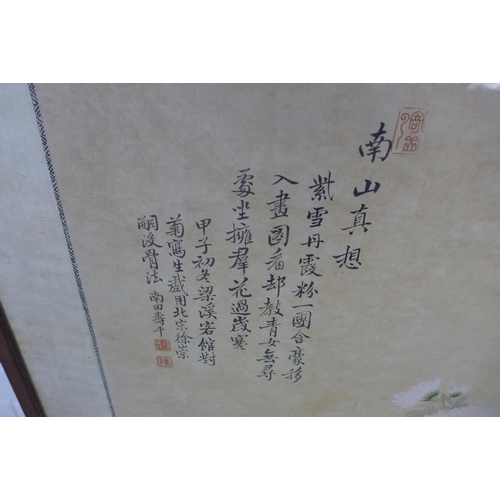 南山真想
紫雪丹霞粉一團含豪移
入畫圖看却教青女無尋
處坐擁羣花過歲寒
甲子初冬梁溪客館對
菊寫生戲用北宗徐崇
嗣沒骨法 南田壽平